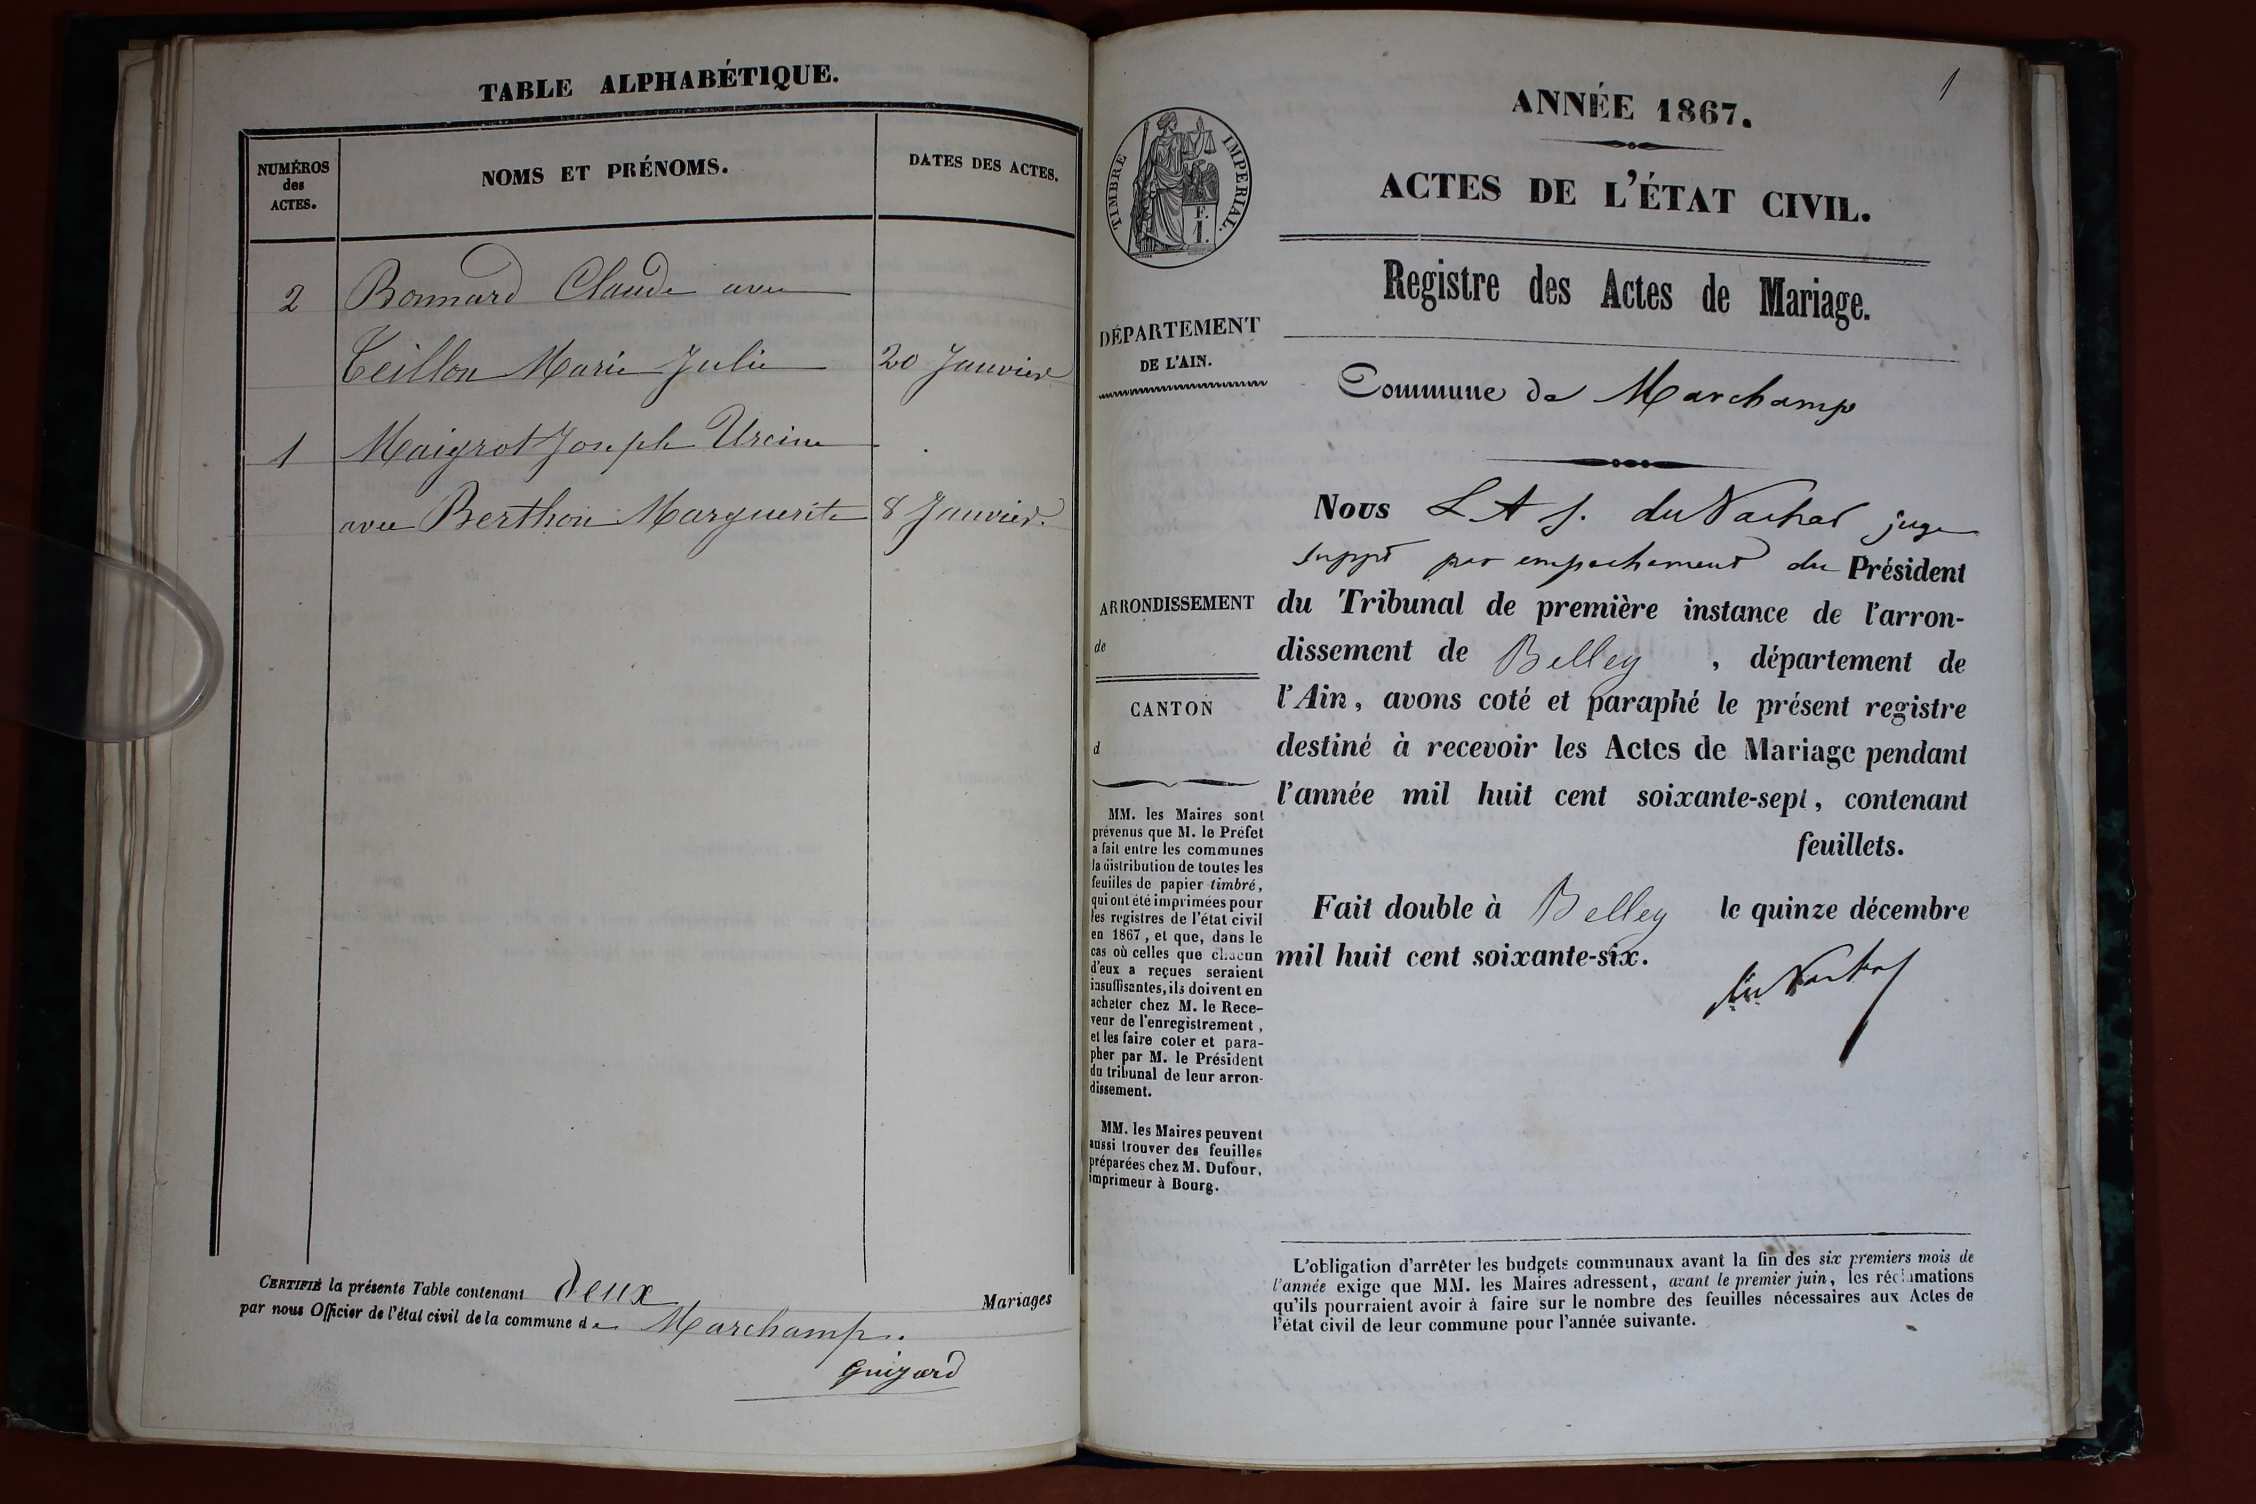 TABLE ALPHABÉTIQUE.
NUMÉROS
des
ACTES.
NOMS ET PRÉNOMS.
DATES DES ACTES.
2 Bonnard Claude avec
Teillon Marie Julie 20 Janvier
1 Maigrot Joseph
avec Berthon Marguerite 8 Janvier.
CERTIFIÉ la présente Table contenant deux Mariages
par nous Officier de l'état civil de la commune de Marchamp.
Guizard
1
ANNÉE 1867.
ACTES DE L'ÉTAT CIVIL.
Registre des Actes de Mariage.
TIMBRE IMPERIAL.
F.
1.
DÉPARTEMENT
DE L'AIN.
Commune de Marchamp
Nous L A J. du juge
suppt par empechement du Président
du Tribunal de première instance de l'arron-
dissement de Belley , département de
l'Ain, avons coté et paraphé le présent registre
destiné à recevoir les Actes de Mariage pendant
l'année mil huit cent soixante-sept, contenant
feuillets.
Fait double à Belley le quinze décembre
mil huit cent soixante-six.
ARRONDISSEMENT
de
CANTON
d
MM. les Maires sont
prévenus que M. le Préfet
a fait entre les communes
la distribution de toutes les
feuilles de papier timbré,
qui ont été imprimées pour
les registres de l'état civil
en 1867, et que, dans le
cas où celles que chacun
d'eux a reçues seraient
insuffisantes, ils doivent en
acheter chez M. le Rece-
veur de l'enregistrement,
et les faire coter et para-
pher par M. le Président
du tribunal de leur arron-
dissement.
MM. les Maires peuvent
aussi trouver des feuilles
préparées chez M. Dufour,
imprimeur à Bourg.
L'obligation d'arrêter les budgets communaux avant la fin des six premiers mois de
l'année exige que MM. les Maires adressent, avant le premier juin, les réclamations
qu'ils pourraient avoir à faire sur le nombre des feuilles nécessaires aux Actes de
l'état civil de leur commune pour l'année suivante.